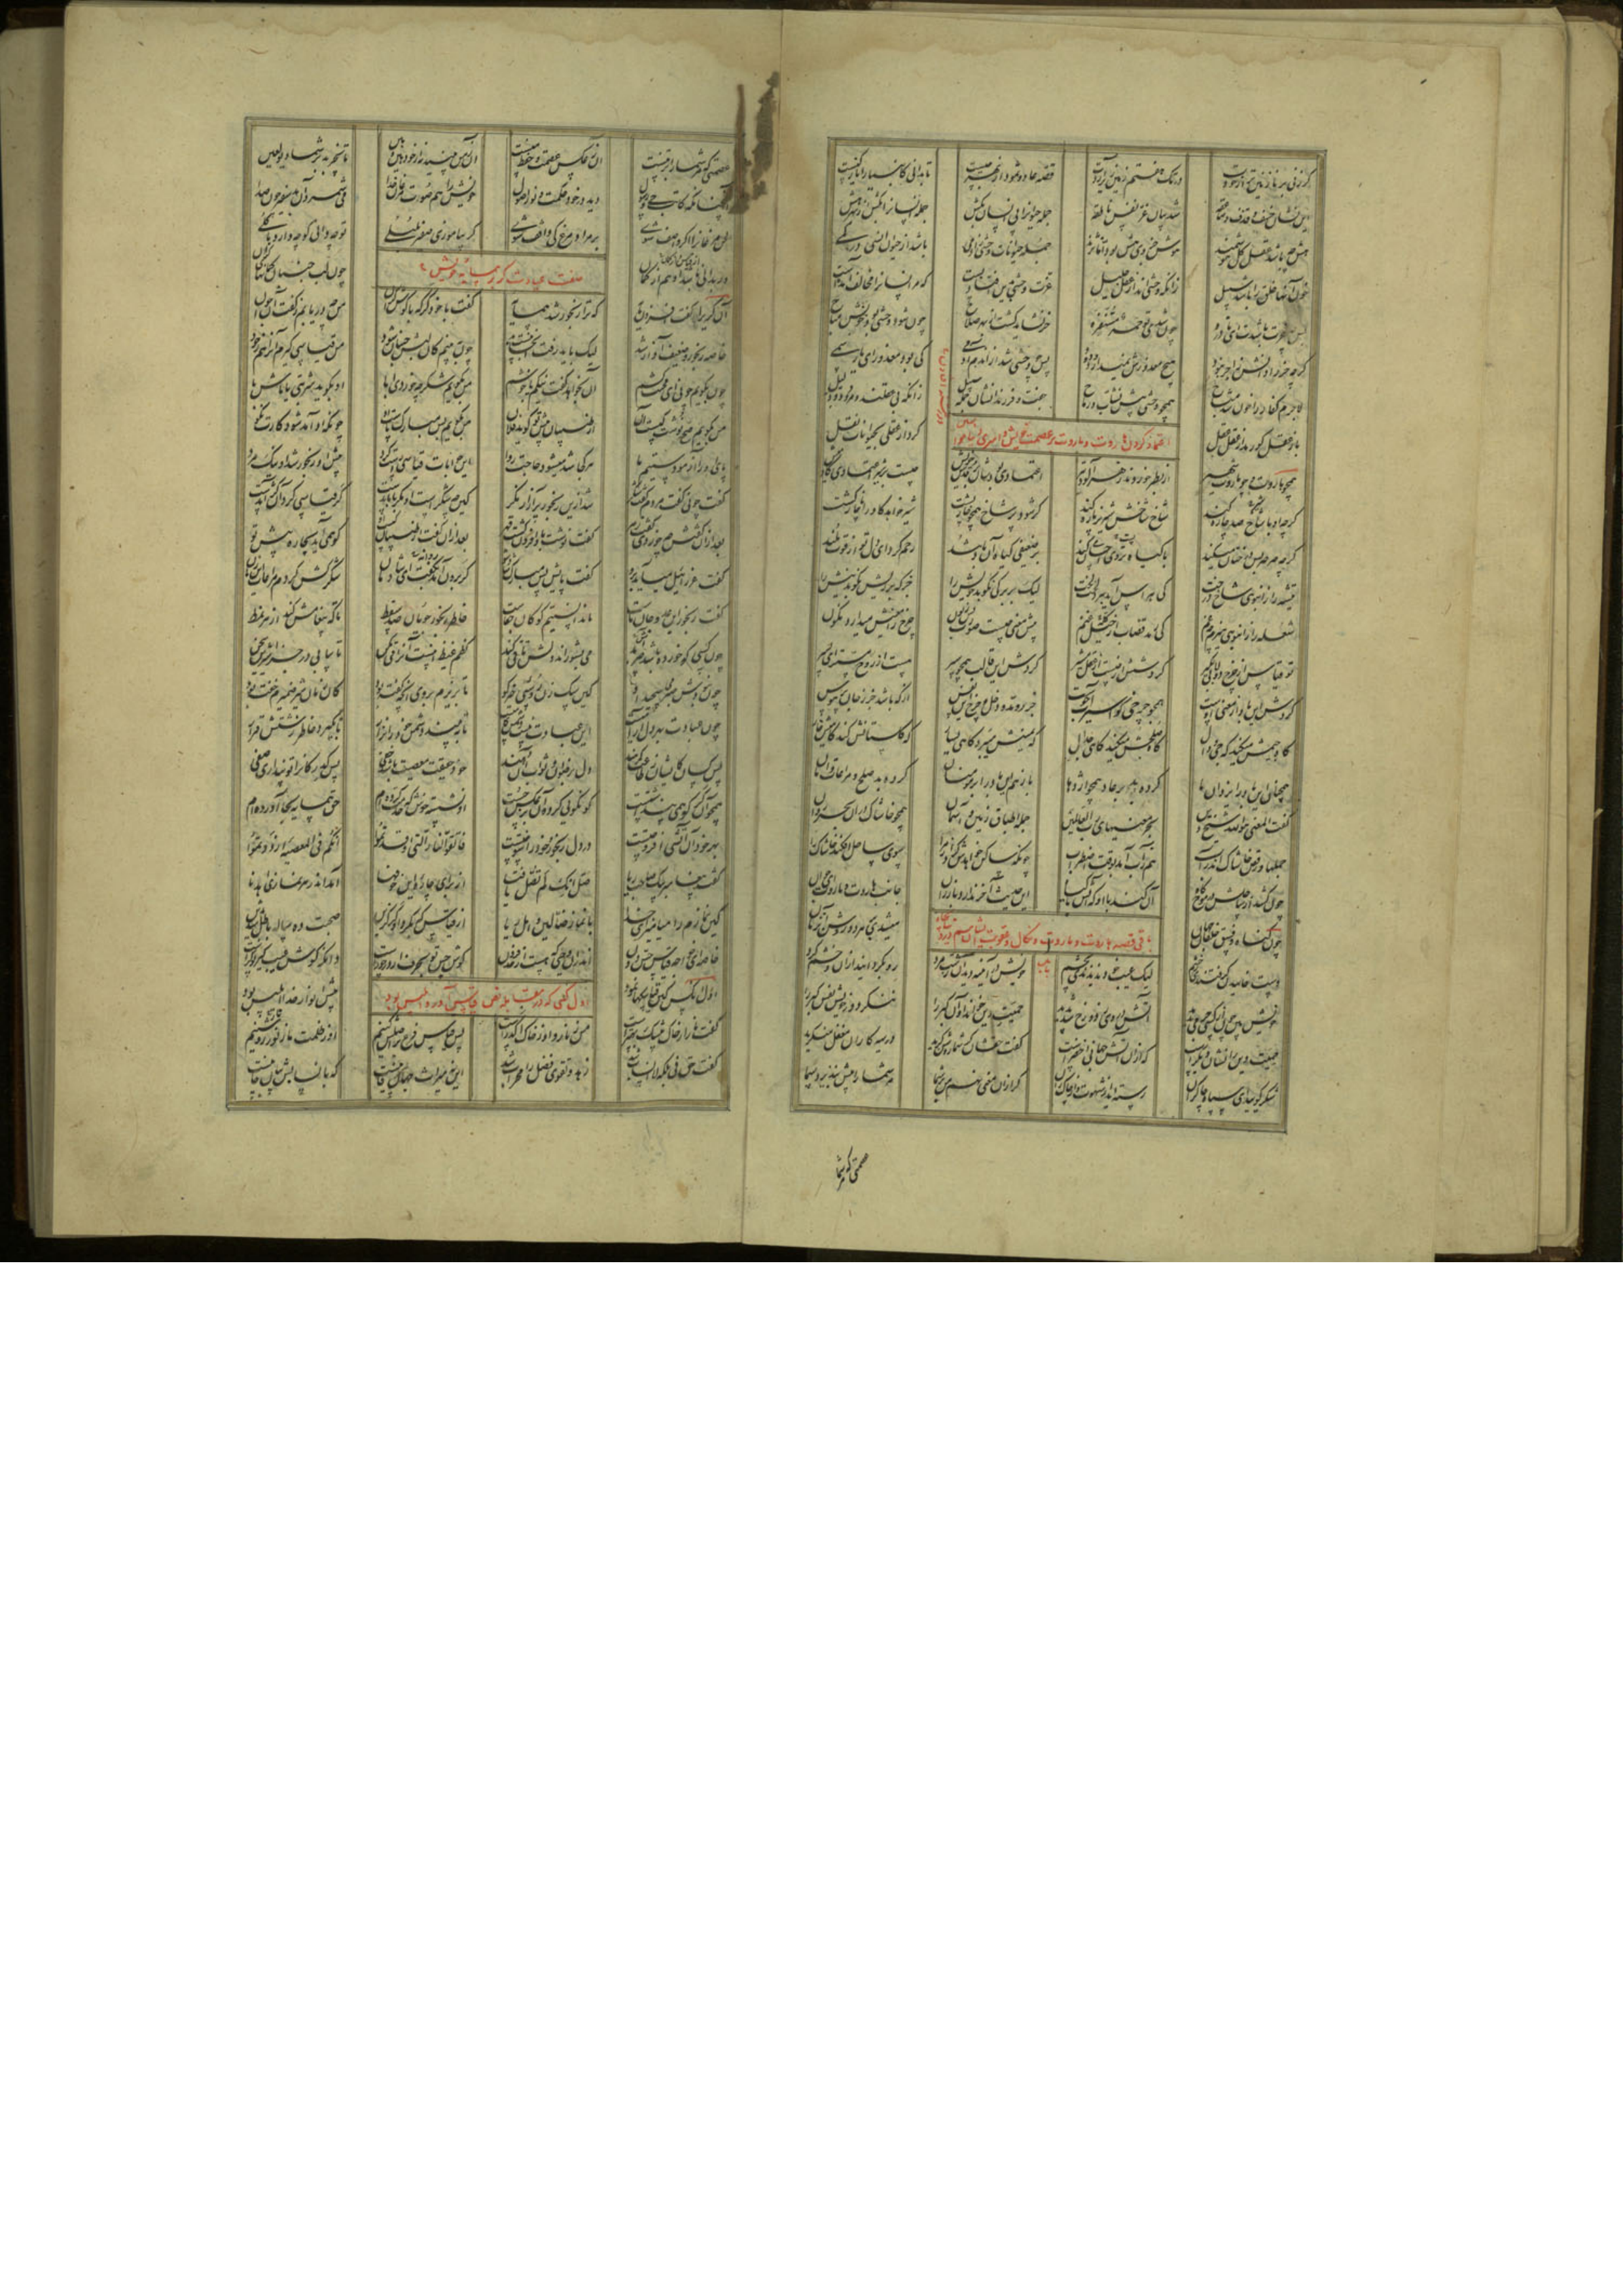 گر زنی بر نازنین تر از خودت در تگ هفتم زمین زیر آردت قصه عاد و ثمود از بهر چیست تا بدانی کانبیا را نازکیست
این نشان خسف و قذف و صاعقه شد بیان عز نفس ناطقه جمله حیوانرا پی انسان بکش جمله انسانرا بکش از بهر هش
هش چه باشد عقل کل هوشمند هوش جزوی هش بود اما نژند جمله حیوانات وحشی ز آدمی باشد از حیوان انسی در کمی
خون آنها خلق را باشد سبیل زانکه وحشی اند از عقل جلیل عزت وحشی بدین افتاد پست که مر انسانرا مخالف آمدست
پس چه عزت باشدت ای نادره چون شدی تو حمر مستنفره خر نشاید کشت از بهر صلاح چون شود وحشی شود خونش مباح
گرچه خر را دانش زاجر نبود هیچ معذورش نمیدارد ودود پس چو وحشی شد از آن دم آدمی کی بود معذور ای یار سمی
لاجرم کفار را خون شد مباح همچو وحشی پیش نشاب و رماح جفت و فرزندانشان جمله سبیل زانکه بی عقلند و مردود و ذلیل
باز عقلی کو رمد از عقل عقل کرد از عقلی بحیوانات نقل
اعتماد کردن هاروت و ماروت بر عصمت خویش و امیری
همچو هاروت و چو ماروت شهیر از بطر خوردند زهر آلود تیر اعتمادی بودشان بر قدس خویش چیست بر شیر اعتماد گاومیش
گرچه او با شاخ صد چاره کند شاخ شاخش شیر نر پاره کند گر شود پر شاخ همچو خارپشت شیر خواهد گاو را ناچار کشت
گرچه صرصر بس درختان میکند با گیاه تر وی احسان میکند بر ضعیفی گیاه آن باد تند رحم کرد ای دل تو از قوت ملند
تیشه را ز انبوهی شاخ درخت کی هراس آید ببرد لخت لخت لیک بر برگی نکوبد خویش را جز که بر نیشی نکوبد نیش را
شعله را ز انبوهی هیزم چه غم کی رمد قصاب از خیل غنم پیش معنی چیست صورت بس زبون چرخ را معنیش میدارد نگون
تو قیاس از چرخ دولابی بگیر گردشش از کیست از عقل مشیر گردش این قالب همچو سپر هست از روح مستر ای پسر
گردش این باد از معنی اوست همچو چرخی کو اسیر آب جوست جر و مد و دخل و خرج این نفس از که باشد جز ز جان پر هوس
گاه جیمش میکند گه حا و دال گاه صلحش میکند گاهی جدال گه یمینش میبرد گاهی یسار گه گلستانش کند گاهیش خار
همچنان این باد را یزدان ما کرده بد بر عاد همچو اژدها باز هم این باد را بر مومنان کرده بد صلح و مراعات و امان
گفت المعنی هو الله شیخ دین بحر معنیهای رب العالمین جمله اطباق زمین و آسمان همچو خاشاک در آن بحر روان
حملها و رقص خاشاک اندر آب هم ز آب آمد بوقت اضطراب چونکه ساکن خواهدش کرد از مرا سوی ساحل افکند خاشاک را
چون کشد از ساحلش در موج گاه آن کند با او که آتش با گیاه این حدیث آخر ندارد باز ران جانب هاروت و ماروت ای جوان
باقی قصه هاروت و ماروت و نکال و عقوبت ایشان هم در دنیا بچاه بابل
چون گناه و فسق خلقان جهان میشدی بر هر دو روشن آن زمان
دست خاییدن گرفتندی ز خشم لیک عیب خود ندیدندی بچشم خویش در آینه دید آن زشت مرد رو بگردانید از آن و خشم کرد
خویش بین چون از کسی جرمی بدید آتشی در وی ز دوزخ شد پدید حمیت دین خواند او آن کبر را ننگرد در خویش نفس کبر را
حمیت دین را نشان دیگرست که از آن آتش جهانی اخضرست گفت حقشان گر شما روشن گرید در سیه کاران مغفل منگرید
شکر گویید ای سپاه و چاکران رسته اید از شهوت و از چاک ران گر از آن معنی نهم من بر شما مر شما را بیش نپذیرد سما
عصمتی که مر شما
عصمتی که مر شما را در تنست آن ز عکس عصمت و حفظ منست آن ز من بینید نز خود هین و هین تا نچربد بر شما دیو لعین
آنچنانکه کاتب وحی رسول دید در خود حکمت و نور اصول خویش را هم صوت مرغان خدا می شمرد آن بد صفیری چون صدا
لحن مرغانرا اگر واصف شوی بر مراد مرغ کی واقف شوی گر بیاموزی صفیر بلبلی تو چه دانی کو چه دارد با گلی
ور بدانی باشد آن هم از گمان چون ز لب جنبان گمانهای کران
صفت عیادت کر بر همسایه خویش
آن کری را گفت افزون مایه که ترا رنجور شد همسایه گفت با خود کر که با گوش گران من چه دریابم ز گفت آن جوان
خاصه رنجور و ضعیف آواز شد لیک باید رفت آنجا نیست بد چون ببینم کان لبش جنبان شود من قیاسی گیرم آنرا هم ز خود
چون بگویم چونی ای محنت کشم او بخواهد گفت نیکم یا خوشم من بگویم شکر چه خوردی ابا او بگوید شربتی یا ماش با
من بگویم صح نوشت کیست آن از طبیبان پیش تو گوید فلان من بگویم بس مبارک پاست او چونکه او آمد شود کارت نکو
پای او را آزمودستیم ما هر کجا شد میشود حاجت روا این جوابات قیاسی راست کرد پیش آن رنجور شد آن نیک مرد
گفت چونی گفت مردم گفت شکر شد ازین رنجور پر آزار و نکر کین چه شکرست او مگر با ما بدست کر قیاسی کرد و آن کژ آمدست
بعد از آن گفتش چه خوردی گفت زهر گفت نوشت باد افزون گشت قهر بعد از آن گفت از طبیبان کیست او کو همی آید بچاره پیش تو
گفت عزرائیل می آید برو گفت پایش بس مبارک شاد شو کر برون آمد بگفت او شادمان شکر کش کردم مراعات این زمان
گفت رنجور این عدو جان ماست ما ندانستیم کو کان جفاست خاطر رنجور جویان صد سقط تا که پیغامش کند از هر نمط
چون کسی کو خورده باشد آش بد می بشوراند دلش تا قی کند کظم غیظ اینست آنرا قی مکن تا بیابی در جزا شیرین سخن
چون نبودش صبر می پیچید او کین سگ زن روسپی حیز کو تا بریزم بر وی آنچه گفته بود کان زمان شیر ضمیرم خفته بود
چون عیادت بهر دل آرامیست این عیادت نیست دشمن کامیست تا ببیند دشمن خود را نزار تا بگیرد خاطر زشتش قرار
بس کسان کایشان عبادتها کنند دل برضوان و ثواب آن نهند خود حقیقت معصیت باشد خفی بس کدر کانرا تو پنداری صفی
همچو آن کر کو همی پنداشتست کو نکویی کرد و آن بر عکس جست او نشسته خوش که خدمت کرده ام حق همسایه بجا آورده ام
بهر خود آن آتشی افروختست در دل رنجور و خود را سوختست فاتقوا النار التی اوقدتموا انکم فی المعصیه ازددتموا
گفت پیغمبر بیک صاحب ریا صل انک لم تصل یا فتی از برای چاره این خوفها آمد اندر هر نمازی اهدنا
کین نمازم را میامیز ای خدا با نماز ضالین و اهل ریا از قیاسی که بکرد آن کر گزین صحبت ده ساله باطل شد بدین
خاصه ای خواجه قیاس حس دون اندر آن وحیی که هست از حد فزون گوش حس تو بحرف ار در خورست دانکه گوش غیب گیر تو کرست
اول کسی که در مقابله نص قیاس آورد ابلیس بود
اول آنکس کین قیاسکها نمود پیش انوار خدا ابلیس بود
گفت نار از خاک بیشک بهترست من ز نار و او ز خاک اکدرست پس قیاس فرع بر اصلش کنیم او ز ظلمت ما ز نور روشنیم
گفت حق نی بلکه لا انساب شد زهد و تقوی فضل را محراب شد این نه میراث جهان فانیست که بانسابش بیابی جانیست